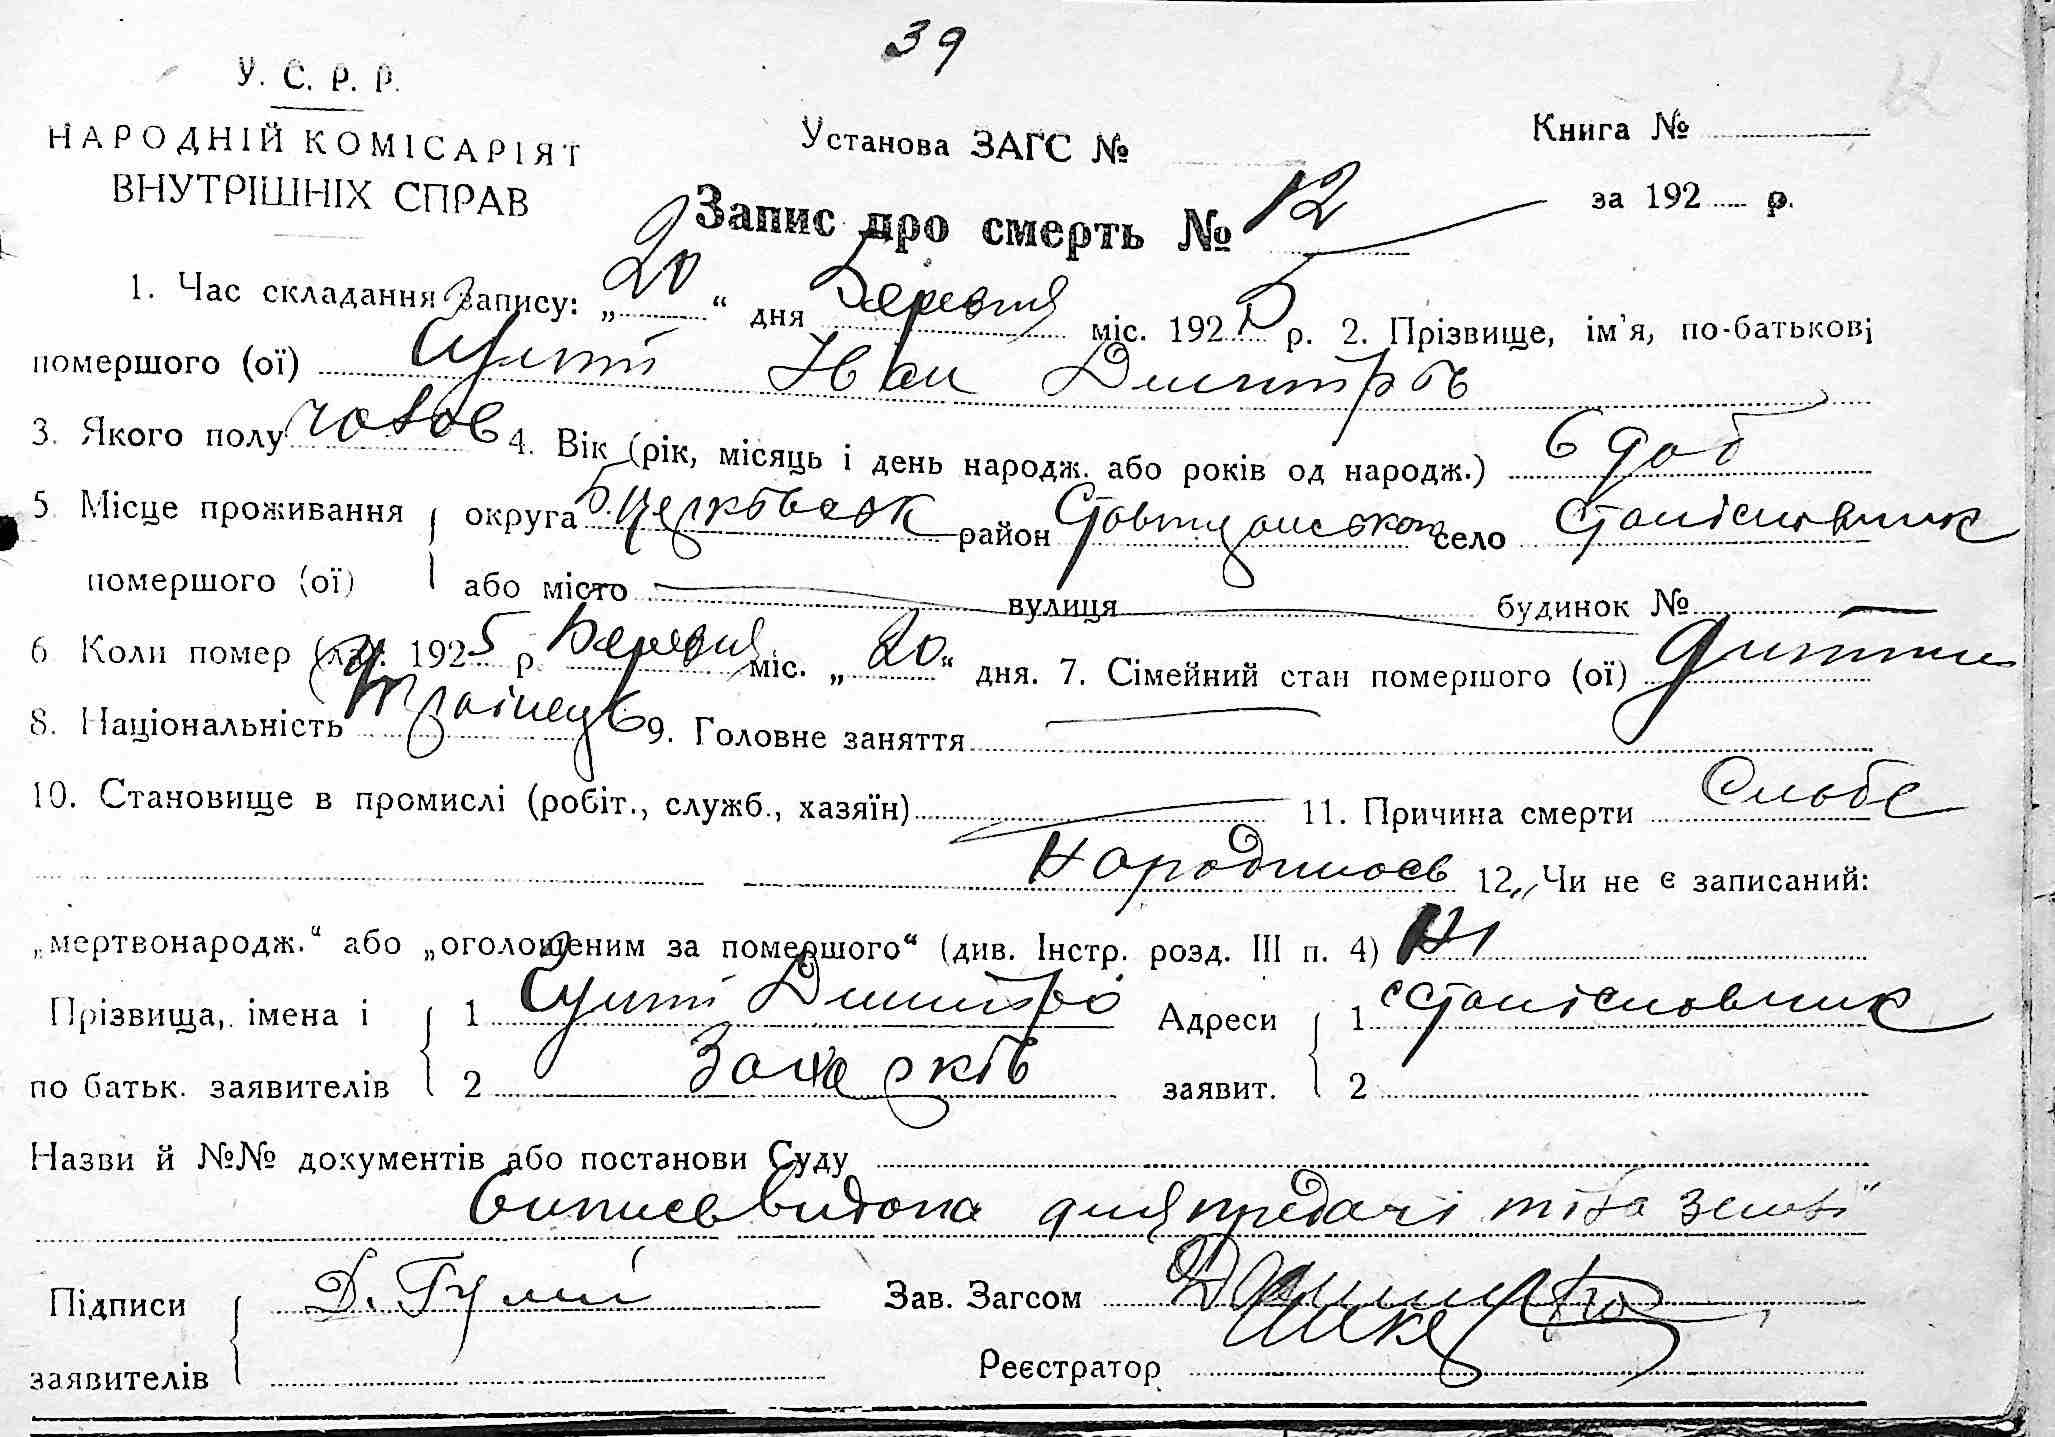 39
У. С. Р. Р.
НАРОДНІЙ КОМІСАРІЯТ
ВНУТРІШНІХ СПРАВ
Установа ЗАГС №
Книга №
за 192 р.
Запис про смерть № 12
1. Час складання запису: „20“ дня Березня міс. 1925 р. 2. Прізвище, ім'я, по-батькові
помершого (ої) Іван Дмитров
3. Якого полу чолов 4. Вік (рік, місяць і день народж. або років од народж.) 6 доб
5. Місце проживання округа Б. Церківськ район село Станіславчик
помершого (ої) або місто вулиця будинок №
6 Коли помер 1925 р. Березня міс. „20“ дня. 7. Сімейний стан помершого (ої) дитина
8. Національність Украінець 9. Головне заняття
10. Становище в промислі (робіт., служб., хазяїн) 11. Причина смерти Слабе
народилось 12. Чи не є записаний:
„мертвонародж.“ або „оголошеним за помершого“ (див. Інстр. розд. III п. 4) Ні
Прізвища, імена і 1 Дмитро Адреси 1 с Станіславчик
по батьк. заявителів 2 Захарків заявит. 2
Назви й №№ документів або постанови Суду
Випись видана для предачі тіла землі
Підписи Д. Зав. Загсом
заявителів Реєстратор